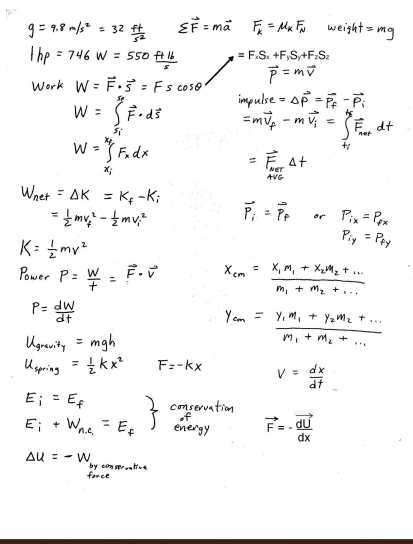 g = 9.8 m/s² = 32 ft/s² ΣF⃗ = ma⃗ F_k = μ_k F_N weight = mg
1 hp = 746 W = 550 ft lb/s
= FₓSₓ + F_yS_y + F_zS_z
p⃗ = mv⃗
Work W = F⃗ · s⃗ = F s cosθ
W = ∫_{s_i}^{s_f} F⃗ · ds⃗
W = ∫_{x_i}^{x_f} Fₓ dx
impulse = Δp⃗ = p⃗_f - p⃗_i
= mv⃗_f - mv⃗_i = ∫_{t_i}^{t_f} F⃗_net dt
= F⃗_{NET AVG} Δt
W_net = ΔK = K_f - K_i
= ½ mv_f² - ½ mv_i²
P⃗_i = P⃗_f or P_ix = P_fx
P_iy = P_fy
K = ½ mv²
Power P = W/t = F⃗ · v⃗
P = dW/dt
X_cm = (x₁m₁ + x₂m₂ + ...)/(m₁ + m₂ + ...)
Y_cm = (y₁m₁ + y₂m₂ + ...)/(m₁ + m₂ + ...)
U_gravity = mgh
U_spring = ½ kx² F = -kx
V = dx/dt
E_i = E_f
E_i + W_n.c. = E_f
conservation
of
energy
F⃗ = - dU⃗/dx
ΔU = - W
by conservative
force